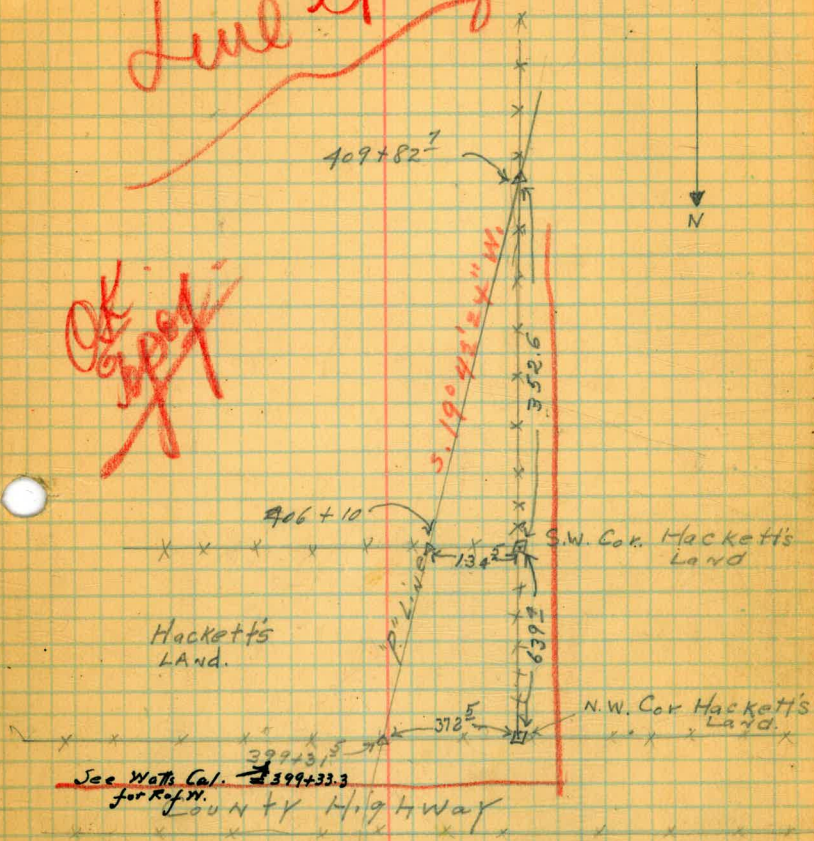 Line
409+82⁷
N
OK
S. 19° 42' 24" W.
352.6
406+10
134⁵
S.W. Cor. Hackett's
Land
"P" Line
Hackett's
LAnd.
639²
372⁵
N.W. Cor Hackett's
Land.
399+31⁵
See Watts Cal. = 399+33.3
for R of W.
County HighWay